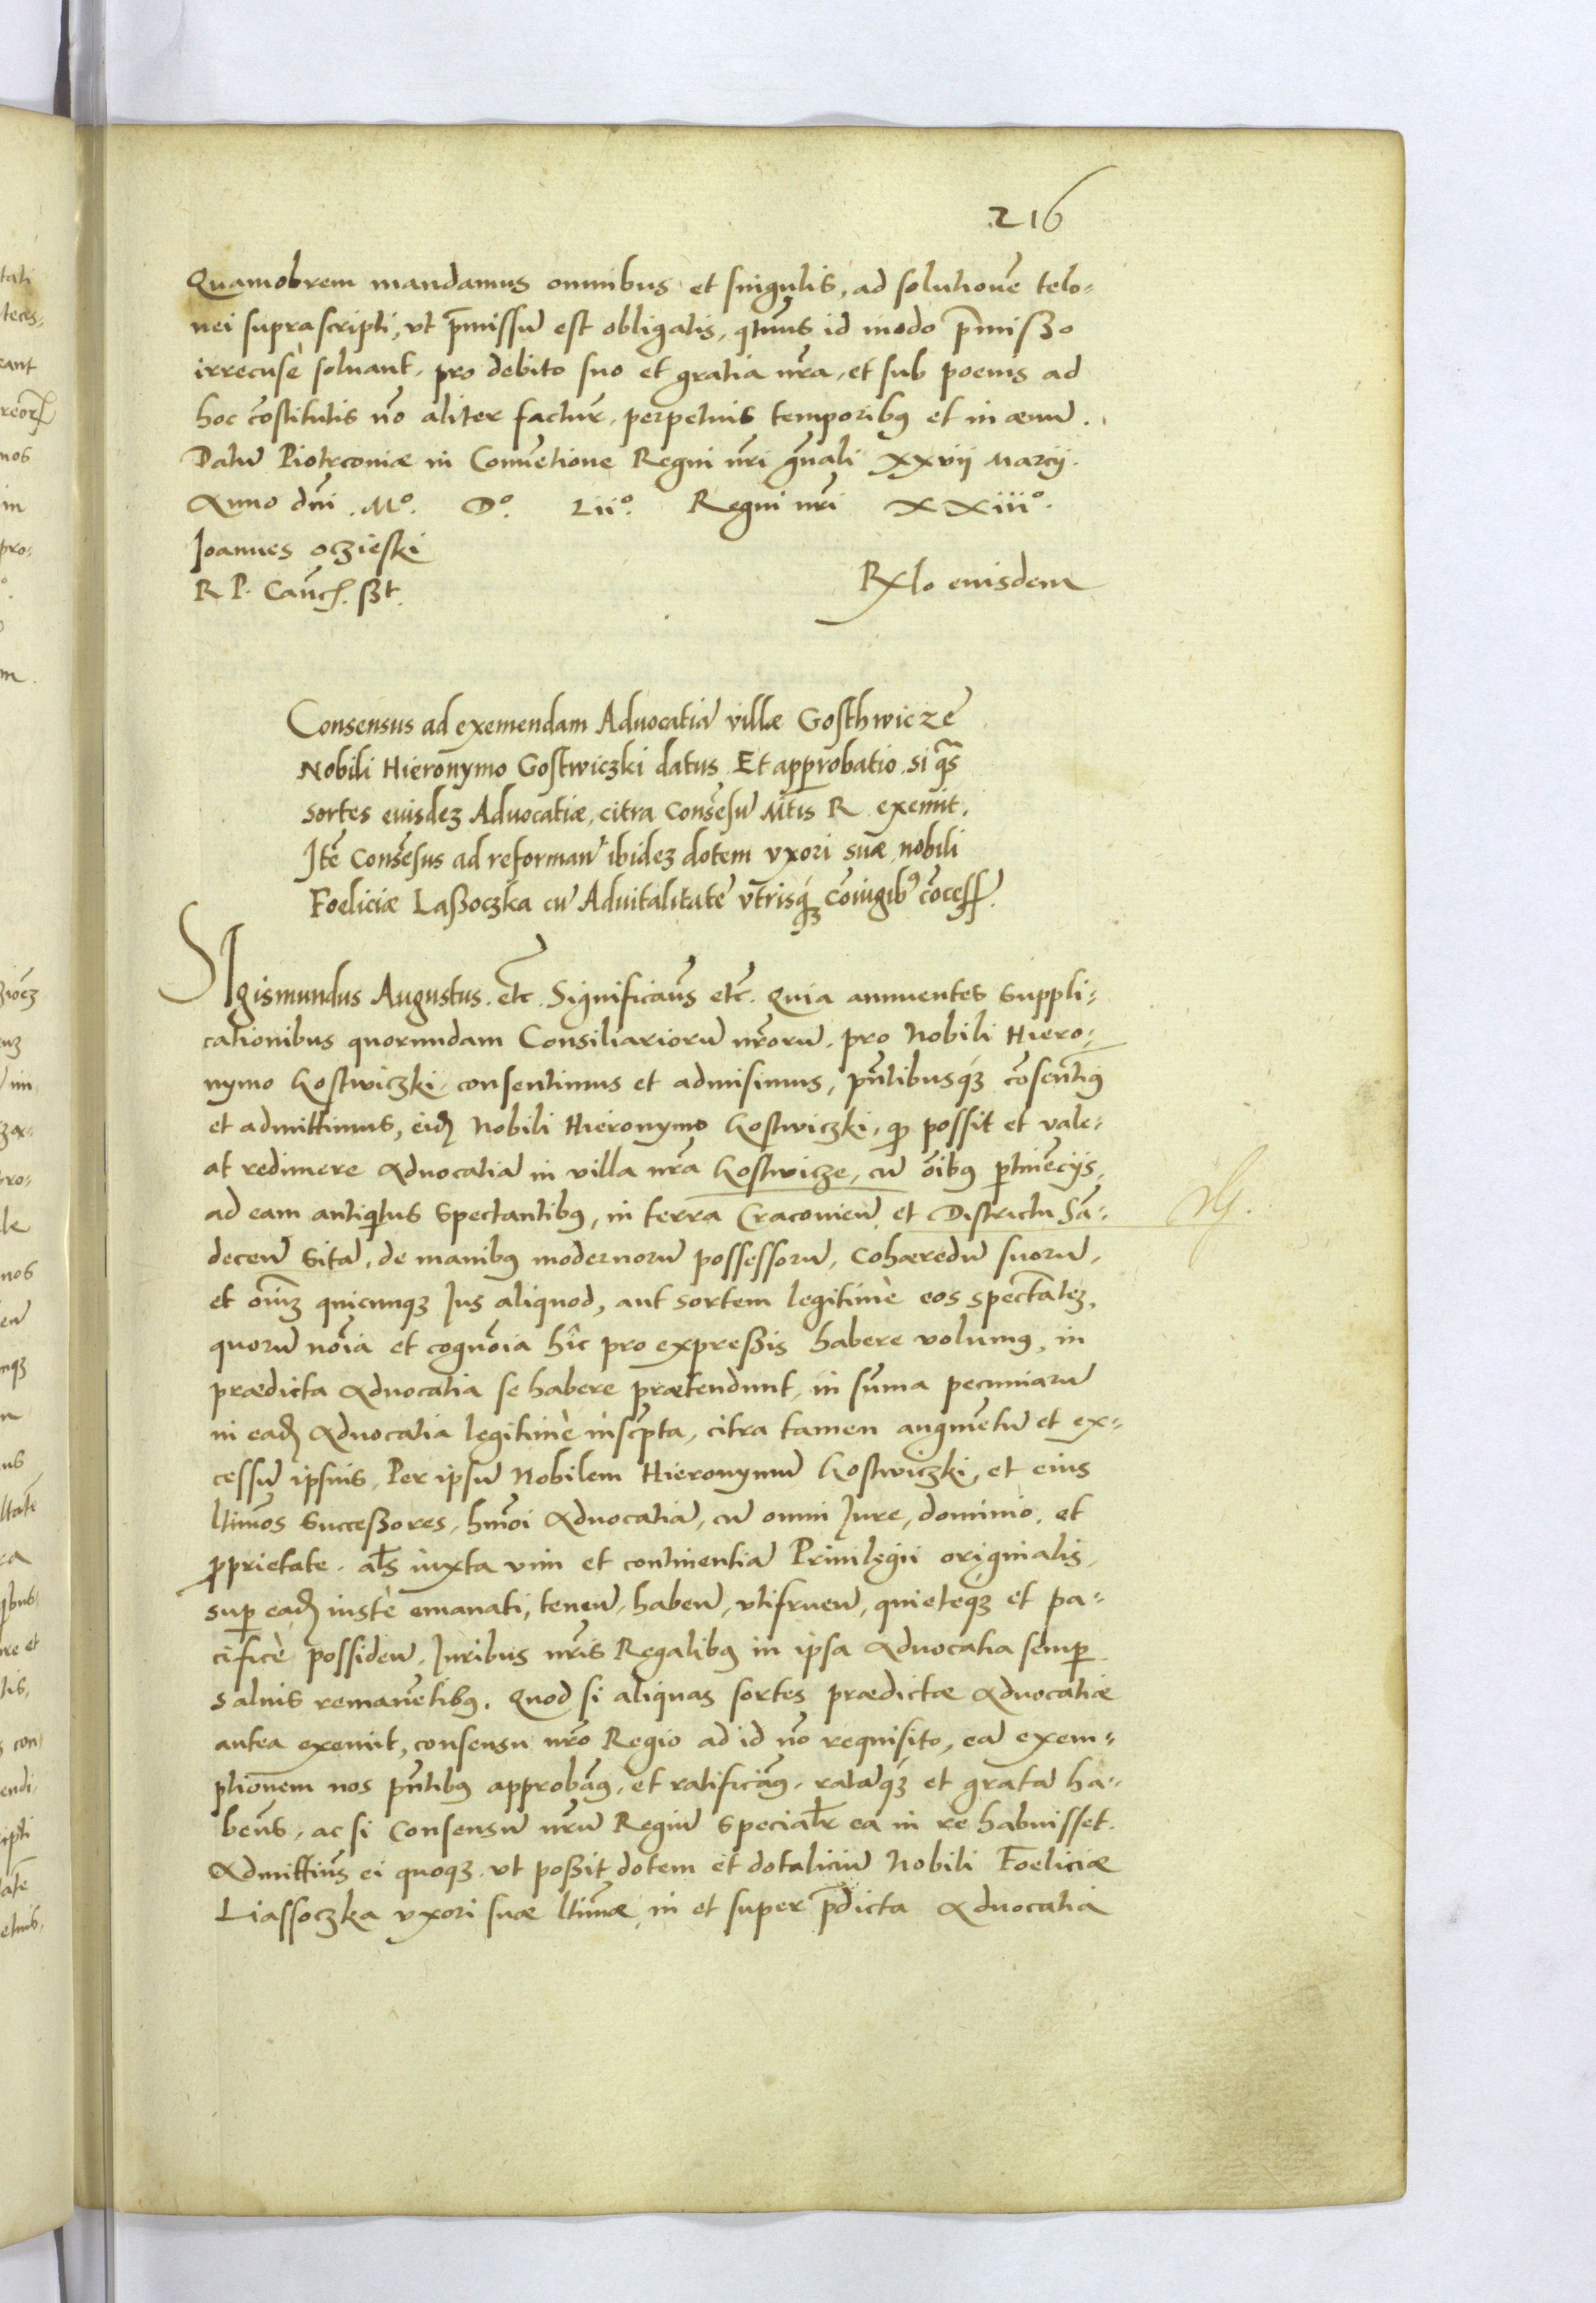 216
Quamobrem mandamus omnibus et singulis, ad solutionē telo-
nei suprascripti, vt p̄missū est obligatis, qtēnus id modo p̄misso
irrecusè soluant, pro debito suo et gratia nr̄a, et sub poenis ad
hoc cōstitutis nō aliter factur̄, perpetuis temporibꝰ et in æuū.
Datū Piotrconiæ in Conuētione Regni nr̄i gn̄ali XXvij Marcij.
Anno dn̄i. Mº. Dº. Lijº. Regni nr̄i XXiijº.
Joannes oczieski
R P. Canc̄. sst.
Rlo eiusdem
Consensus ad exemendam Aduocatiā villæ Gosthwicze
Nobili Hieronymo Gostwiczki datus. Et approbatio, si qās
sortes eiusdeʒ Aduocatiæ, citra Consēsū Mtis R. exemit.
Itē Consēsus ad reforman̄ ibideʒ dotem vxori suæ nobili
Foeliciæ Lassoczka cū Aduitalitatē vtrisqʒ cōiugibꝰ cōcess.
SIgismundus Augustus. etc. Significam̄s etc. Quia annuentes suppli-
cationibus quorundam Consiliariorū nr̄orū, pro Nobili Hiero-
nymo Gostwiczki, consentimus et admisimus, pn̄tibusqʒ cōsentimꝰ
et admittimus, eidē Nobili Hieronymo Gostwiczki, qđ possit et vale-
at redimere Aduocatiā in villa nr̄a Gostwicze, cū oībꝰ ptinēcijs,
ad eam antiqitus spectantibꝰ, in terra Cracouien̄ et Districtu Sā-
decen̄ sitā, de manibꝰ modernorū possessorū, Cohæredū suorū,
et oīm quicunqʒ Jus aliquod, aut sortem legitimè eos spectātēʒ,
quorū nōīa et cognōīa hîc pro expressis habere volumꝰ, in
prædicta Aduocatia se habere prætendunt, in sūma pecuniarū
in eadē Aduocatia legitimè insc̄pta, citra tamen augmētū et ex-
cessū ipsius, Per ipsū Nobilem Hieronymū Gostwiczki, et eius
ltimos Successores, hmōi Aduocatiā, cū omni Jure, dominio, et
proprietate, als iuxta vim et continentiā Priuilegii originalis,
sup eadē iustè emanati, tenen̄, haben̄, vtifruen̄, quieteqʒ et pa-
cificè possiden̄, Juribus nr̄is Regalibꝰ in ipsa Aduocatia semp
saluis remanētibꝰ. Quod si aliquas sortes prædictæ Aduocatiæ
antea exemit, consensu nr̄o Regio ad id nō requisito, eā exem-
ptionem nos pn̄tibꝰ approbamꝰ, et ratificamꝰ, ratāqʒ et gratā ha-
bem̄s, ac si Consensū nr̄ū Regiū specialr̄ ea in re habuisset.
Admittim̄s ei quoqʒ vt possit dotem et dotaliciū Nobili Foeliciæ
Liassoczka vxori suæ ltimæ, in et super p̄dicta Aduocatia